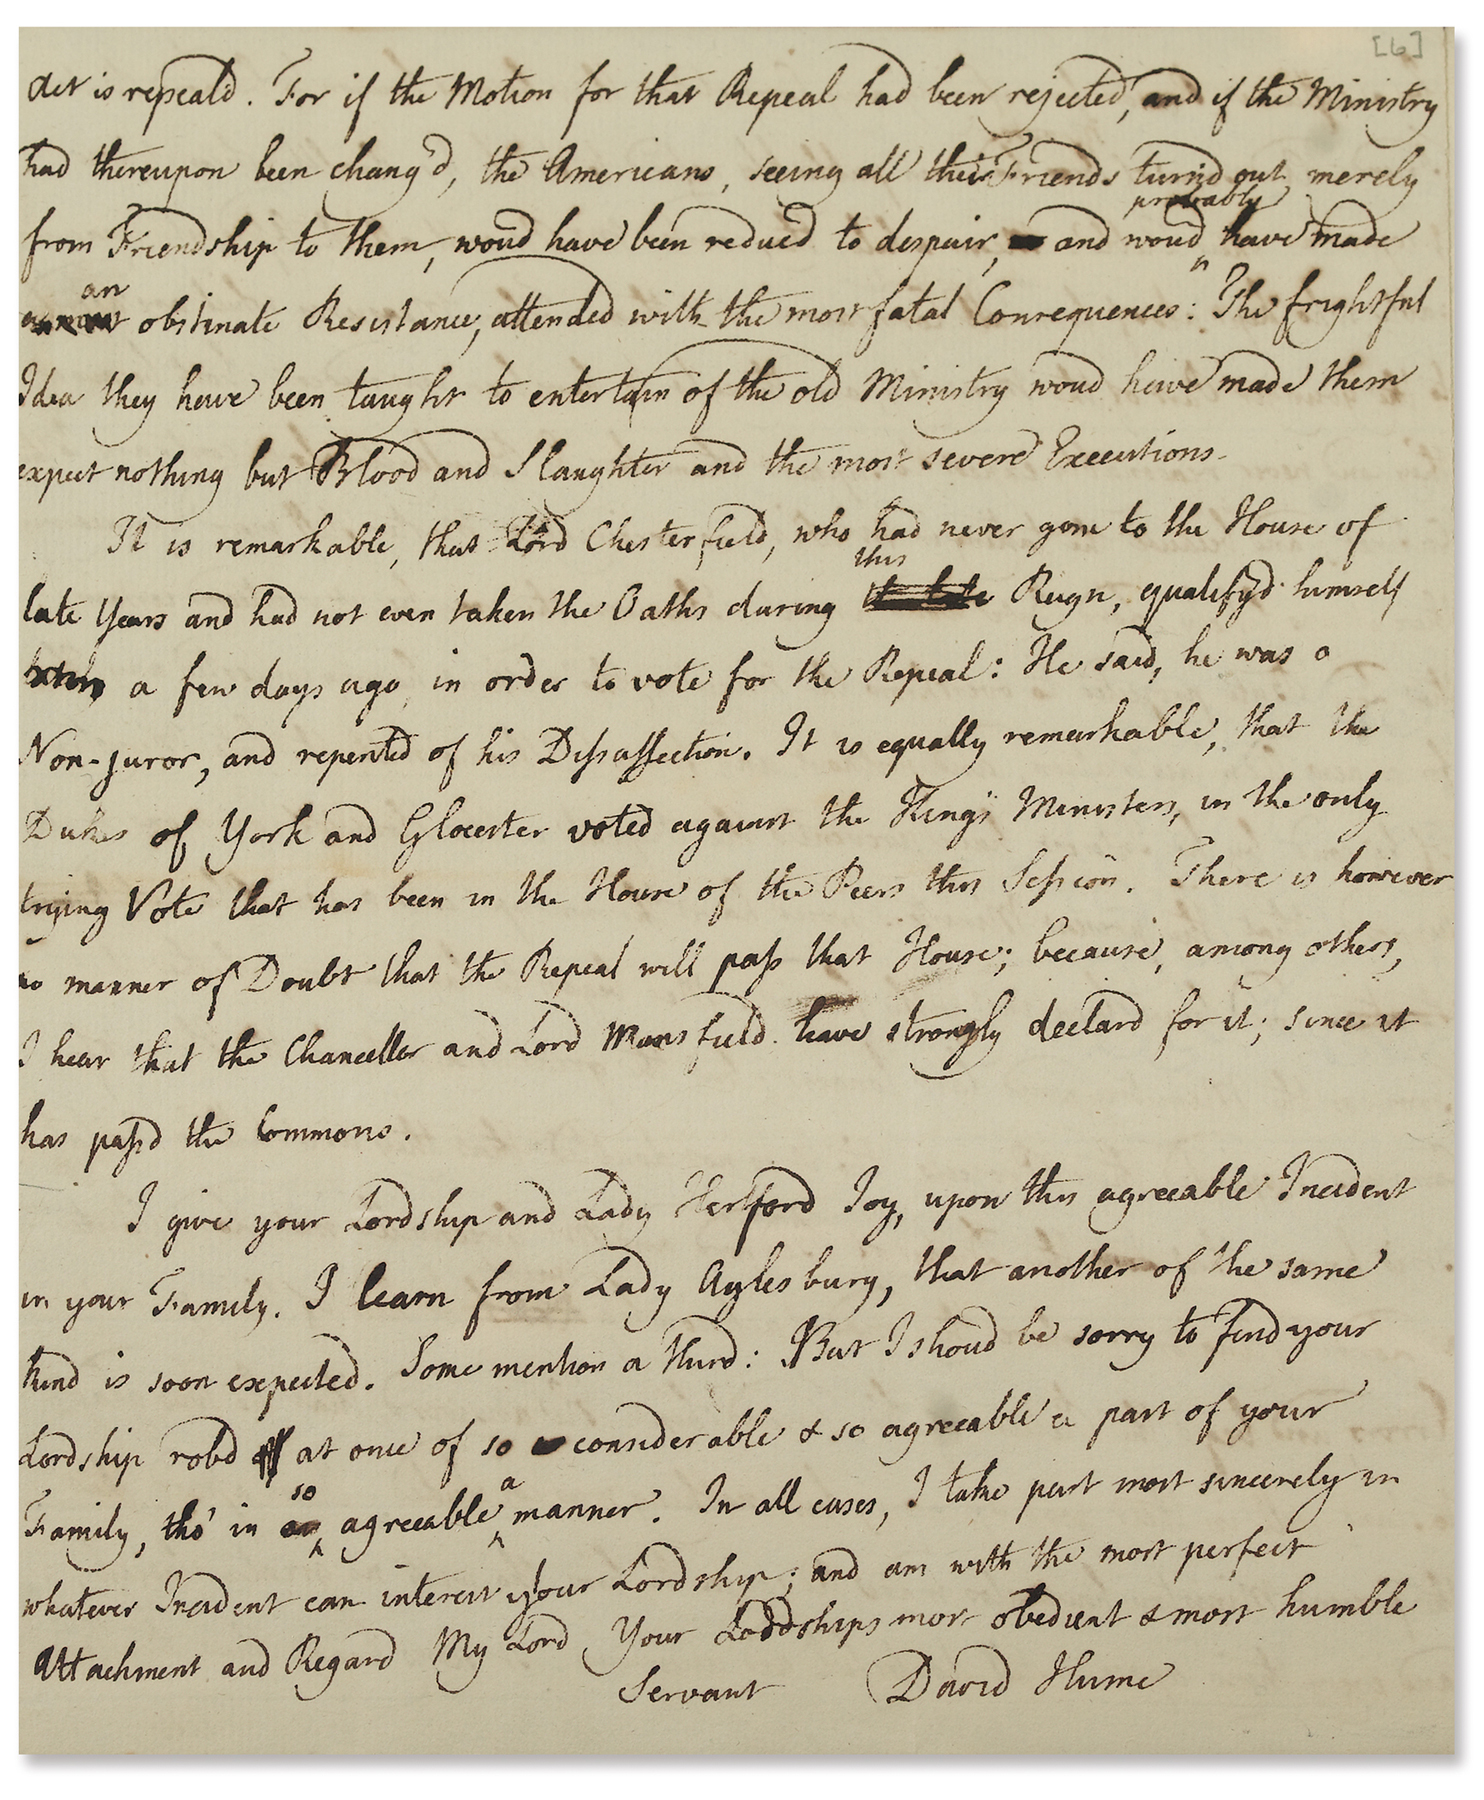 [6]
Act is repeald. For if the Motion for that Repeal had been rejected, and if the Ministry
had thereupon been chang'd, the Americans, seeing all their Friends turn'd out merely
probably
from Friendship to them, woud have been reduc'd to despair, and woud ^ have made
an
obstinate Resistance, attended with the most fatal Consequences: The frightful
Idea they have been taught to entertain of the old Ministry woud have made them
expect nothing but Blood and Slaughter and the most severe Executions.
It is remarkable, that Lord Chesterfield, who had never gone to the House of
this
late Years and had not even taken the Oaths during Reign, qualify'd himself
a few days ago, in order to vote for the Repeal: He said, he was a
Non-juror, and repented of his Disaffection. It is equally remarkable, that the
Dukes of York and Glocester voted against the King's Ministers, in the only
trying Vote that has been in the House of the Peers this Session. There is however
no manner of Doubt that the Repeal will pass that House; because, among others,
I hear that the Chancellor and Lord Mansfield have strongly declard for it; since it
has pass'd the Commons.
I give your Lordship and Lady Hertford Joy, upon this agreeable Incident
in your Family. I learn from Lady Aylesbury, that another of the same
kind is soon expected. Some mention a third: But I shoud be sorry to find your
Lordship robd at once of so considerable & so agreeable a part of your
so a
Family, tho' in ^ agreeable ^ manner. In all cases, I take part most sincerely in
whatever Incident can interest your Lordship; and am with the most perfect
Attachment and Regard My Lord Your Lordships most obedient & most humble
Servant David Hume